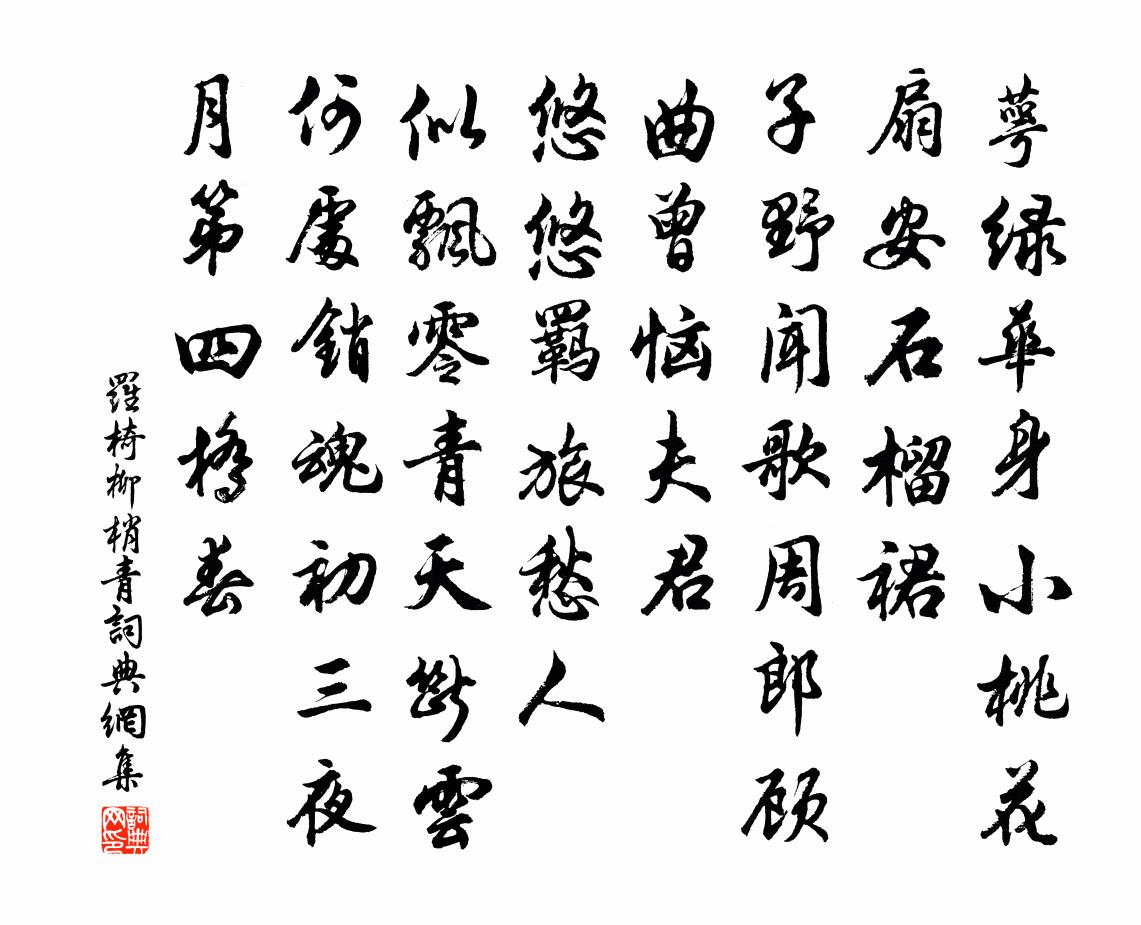 萼绿华身小桃花
扇安石榴裙
子野闻歌周郎顾
曲曾恼夫君
悠悠羁旅愁人
似飘零青天断云
何处销魂初三夜
月第四桥春
羅椅柳梢青詞典網集
詞典网印